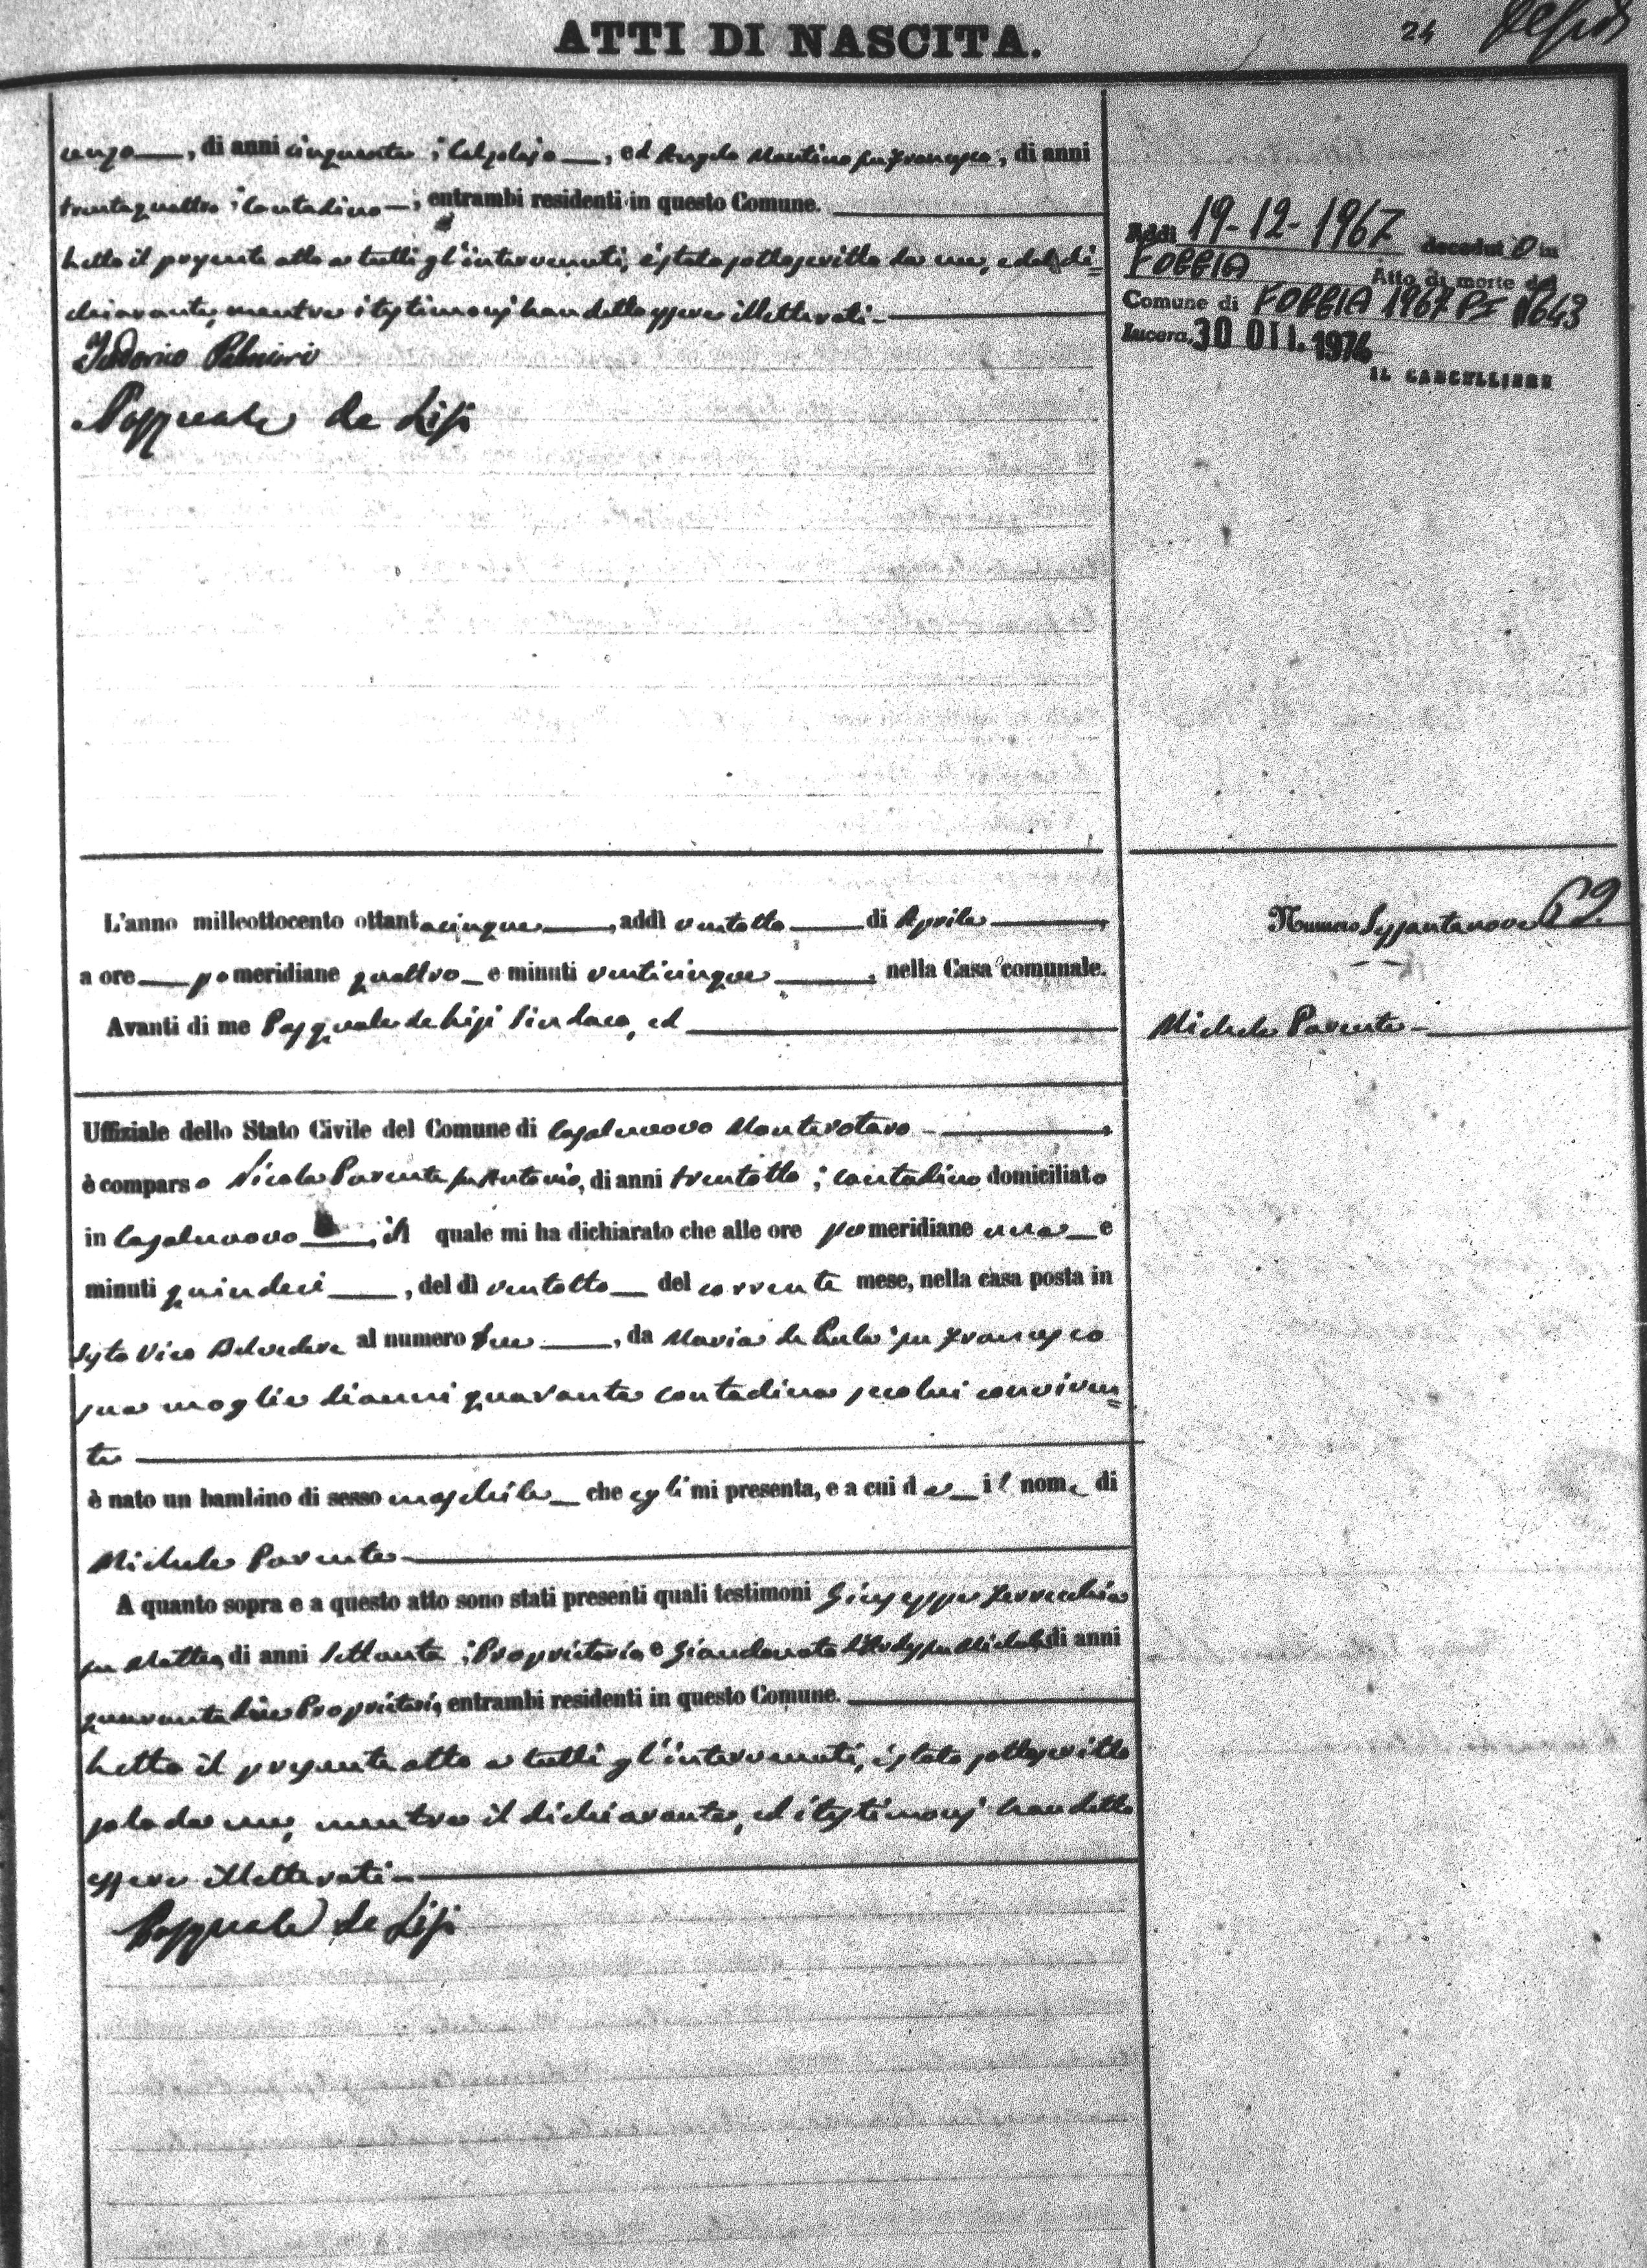 ATTI DI NASCITA.
24
, di anni cinquanta ; Calzolajo , ed Angelo Martino fu Francesco, di anni
trentaquattro ; Contadino ; entrambi residenti in questo Comune.
Letto il presente atto a tutti gl'intervenuti, è stato sottoscritto da me, e dal di=
chiarante, mentre i testimonj han detto essere illetterati
Palmieri
Pasquale de Lisi
Addì 19-12-1967 decedut o in
FOGGIA Atto di morte del
Comune di FOGGIA 1967 PI N 643
Lucera, 30 OTT. 1976
IL CANCELLIERE
L'anno milleottocento ottantacinque, addì ventotto di Aprile,
a ore pomeridiane quattro e minuti venticinque, nella Casa comunale.
Avanti di me Pasquale de Lisi Sindaco, ed
Numero Sessantanove 69.
Michele Parente
Uffiziale dello Stato Civile del Comune di Casalnuovo Monterotaro,
è comparso Nicola Parente fu Antonio, di anni trentotto ; contadino domiciliato
in Casalnuovo, il quale mi ha dichiarato che alle ore pomeridiane una e
minuti quindeci, del dì ventotto del corrente mese, nella casa posta in
Sesto Vico Belvedere al numero due, da Maria de Paula fu Francesco
sua moglie di anni quaranta contadina seco lui conviven=
te
è nato un bambino di sesso maschile che egli mi presenta, e a cui da il nome di
Michele Parente
A quanto sopra e a questo atto sono stati presenti quali testimoni Giuseppe Ferrecchia
fu Matteo, di anni settanta ; Proprietario e Giandonato fu Michele di anni
quarantadue Proprietario, entrambi residenti in questo Comune.
Letto il presente atto a tutti gl'intervenuti, è stato sottoscritto
solo da me, mentre il dichiarante, ed i testimonj han detto
essere illetterati
Pasquale de Lisi